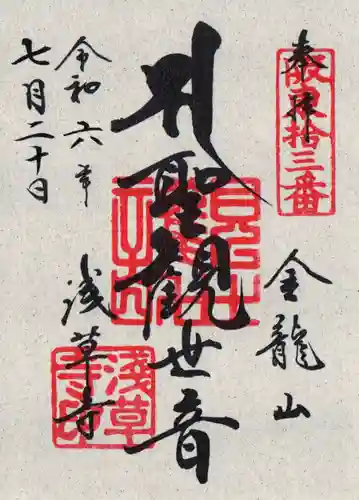 奉拝
坂東拾三番
金龍山
聖観世音
浅草寺
淺草寺印
令和六年
七月二十日